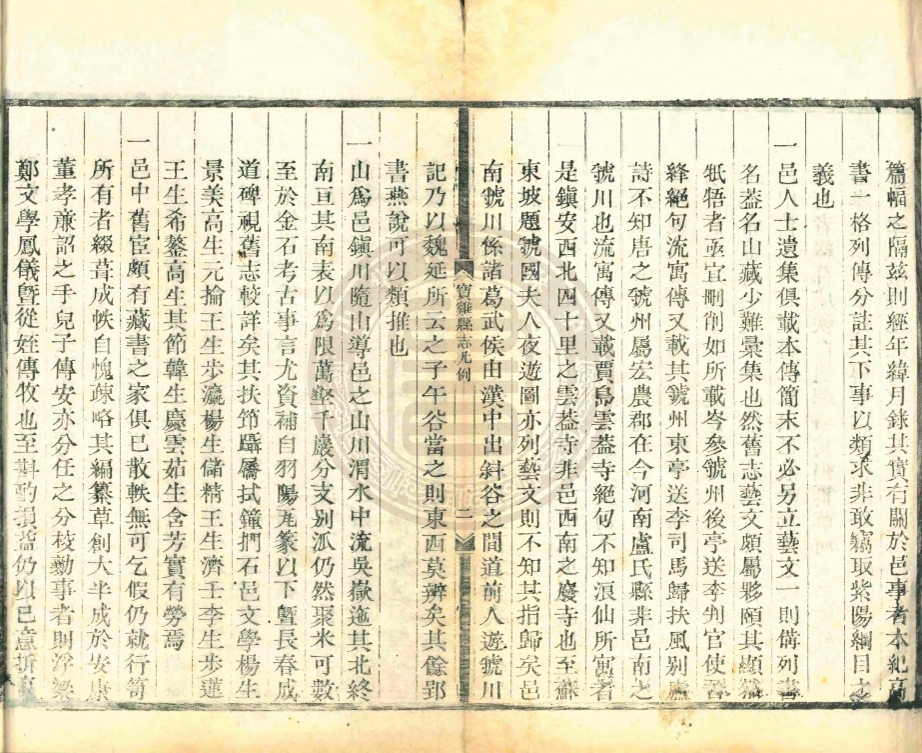 篇幅之隔茲則經年緯月錄其實有關於邑事者本紀高
書一格列傳分註其下事以類求非敢竊取紫陽綱目之
義也
一邑人士遺集俱載本傳簡末不必另立藝文一則備列書
名蓋名山藏少難彙集也然舊志藝文頗屬夥頤其顯然
牴牾者亟宜刪削如所載岑參虢州後亭送李判官使晉
絳絕句流寓傳又載其虢州東亭送李司馬歸扶風別廬
詩不知唐之虢州屬宏農郡在今河南盧氏縣非邑南之
虢川也流寓傳又載賈島雲蓋寺絕句不知浪仙所寓者
是鎮安西北四十里之雲蓋寺非邑西南之廢寺也至蘇
東坡題虢國夫人夜遊圖亦列藝文則不知其指歸矣邑
南虢川係諸葛武侯由漢中出斜谷之間道前人遊虢川
寶雞縣志凡例
二
記乃以魏延所云之子午谷當之則東西莫辨矣其餘郢
書燕說可以類推也
一山為邑鎮川隨山導邑之山川渭水中流吳嶽迤其北終
南亘其南表以為限萬壑千巖分支別派仍然聚米可數
至於金石考古事言尤資補自羽陽瓦篆以下暨長春成
道碑視舊志較詳矣其扶筇躡屩拭鐘捫石邑文學楊生
景美高生元掄王生步瀛楊生儲精王生濟士李生步蓮
王生希鏊高生其節韓生慶雲茹生含芳實有勞焉
一邑中舊宦頗有藏書之家俱已散軼無可乞假仍就行笥
所有者綴葺成帙自愧疎略其編纂草創大半成於安康
董孝廉詔之手兒子傳安亦分任之分校勷事者則浮梁
鄭文學鳳儀暨從姪傳牧也至斟酌損益仍以己意折衷